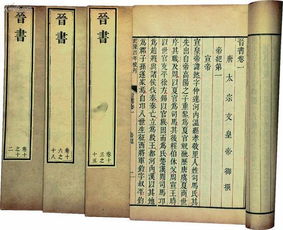 晉書卷一
唐太宗文皇帝御撰
帝紀第一
宣帝
宣皇帝諱懿字仲達河內溫縣孝敬里人姓司馬氏其
先出自帝高陽之子重黎爲夏官祝融歷唐虞夏商世
序其職及周以夏官爲司馬其後程伯休父周宣王時
以世官克平徐方錫以官族因而爲氏楚漢間司馬卬
爲趙將與諸侯伐秦秦亡立爲殷王都河內漢以其地
爲郡子孫遂家焉自卬八世生征西將軍鈞字叔平鈞
晉書
卷十
三之
十五
晉書
卷十
六之
十八
晉書
卷十
之十
二